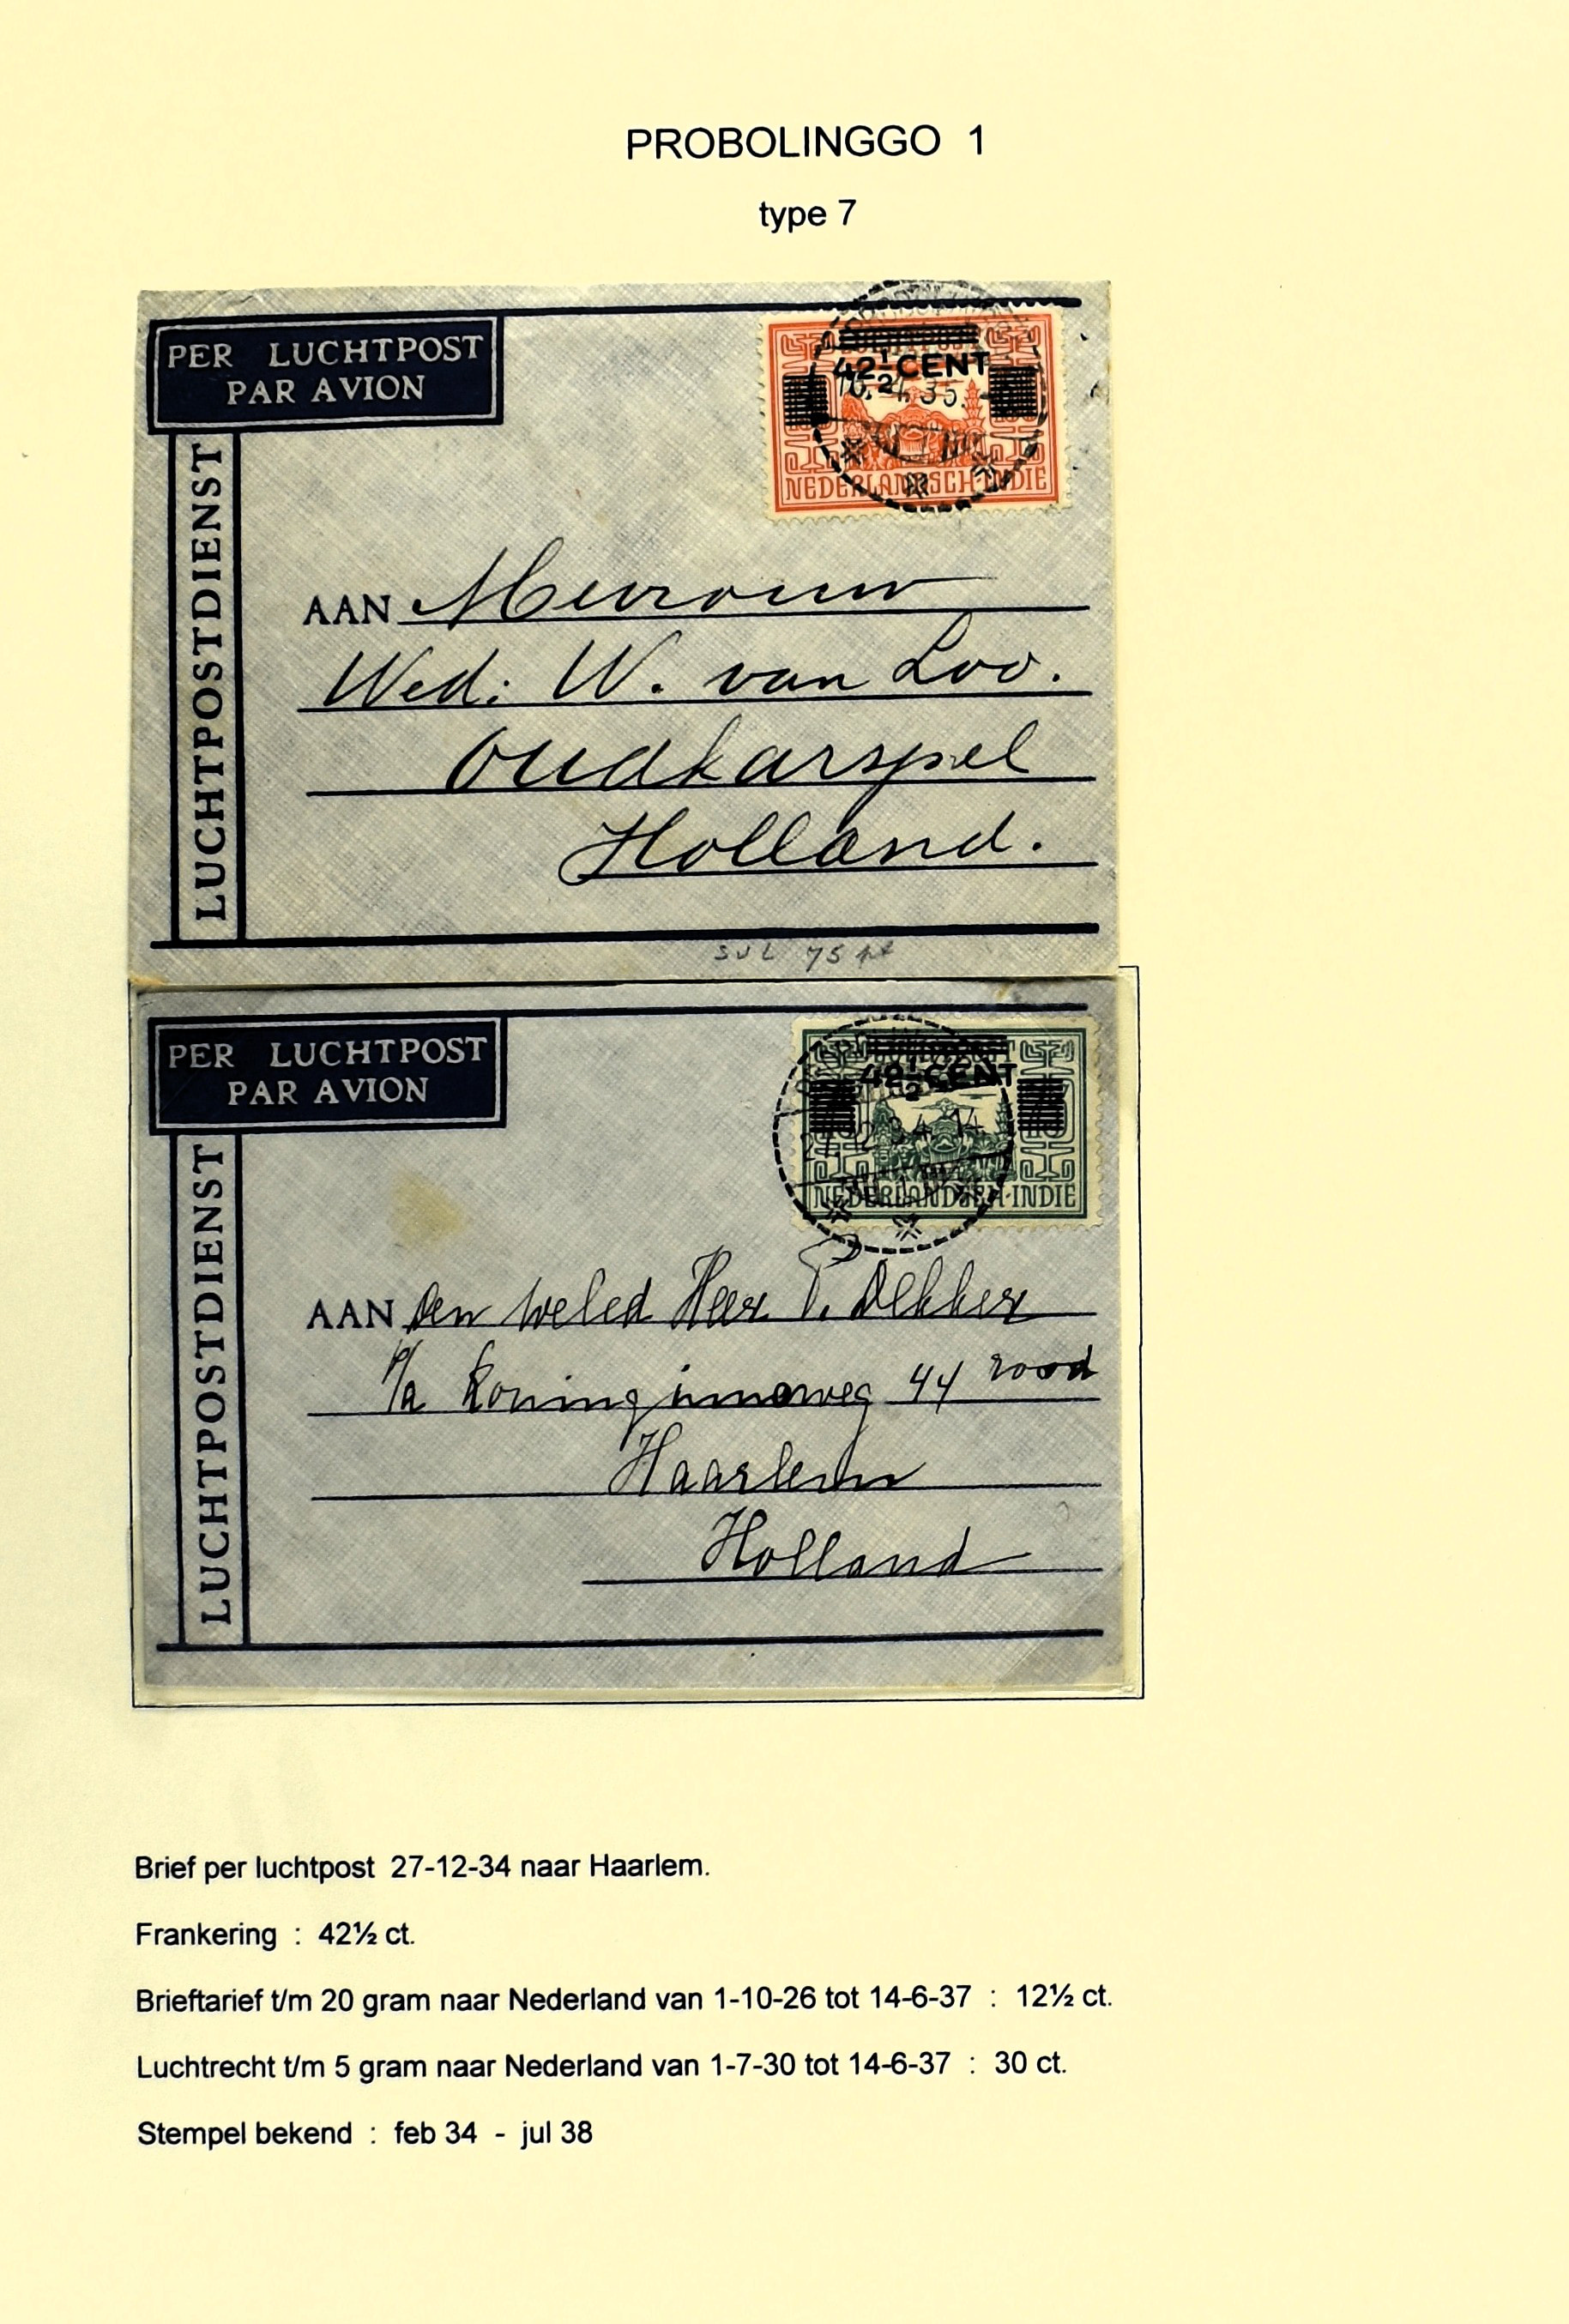 PROBOLINGGO 1
type 7
PER LUCHTPOST
PAR AVION
LUCHTPOSTDIENST
42½ CENT
4.35.
NEDERLANDSCH-INDIE
AAN Mevrouw
Wed: W. van Loo.
Oudkarspel
Holland.
PER LUCHTPOST
PAR AVION
LUCHTPOSTDIENST
42½ CENT
27.12.34. 14
NEDERLANDSCH-INDIE
AAN Den weled Heer P. Dekker
p/a Koninginneweg 44 rood
Haarlem
Holland
Brief per luchtpost 27-12-34 naar Haarlem.
Frankering : 42½ ct.
Brieftarief t/m 20 gram naar Nederland van 1-10-26 tot 14-6-37 : 12½ ct.
Luchtrecht t/m 5 gram naar Nederland van 1-7-30 tot 14-6-37 : 30 ct.
Stempel bekend : feb 34 - jul 38